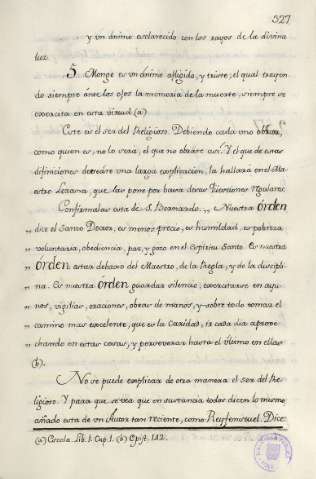 327
y un ánimo esclarecido con los rayos de la divina
luz.
5. Monge es un ánimo afligido, y triste, el qual trayen-
do siempre ante los ojos la memoria de la muerte, siempre se
exercita en esta virtud. (a)
Este es el ser del Religioso. Debiendo cada uno obrar,
como quien es, no lo será, el que no obráre así. Y el que de estas
difiniciones deseáre una larga explicación, la hallará en el Ma-
estro Lezana, que las pone por basa de sus Questiones Regulares.
Confírmalas esta de S. Bernardo. „ Nuestra órden
„ dice el Santo Doctor, es menos precio, es humildad, es pobreza
„ voluntaria, obediencia, paz, y gozo en el Espíritu Santo. Es nuestra
„ órden estar debaxo del Maestro, de la Regla, y de la discipli-
„ na. Es nuestra órden guardar silencio, exercitarse en ayu-
„ nos, vigilias, oraciones, obras de manos, y sobre todo tomar el
„ camino mas excelente, que es la Caridad, ir cada dia aprove-
„ chando en estas cosas, y perseverar hasta el último en ellas
(b).
No se puede explicar de otra manera el ser del Re-
ligioso. Y para que se vea que en sustancia todos dicen lo mismo
añado esta de un Autor tan reciente, como Reyfenstuel. Dice
(a) Escala. Lib. 1. Cap. 1. (b) Epist. 142.